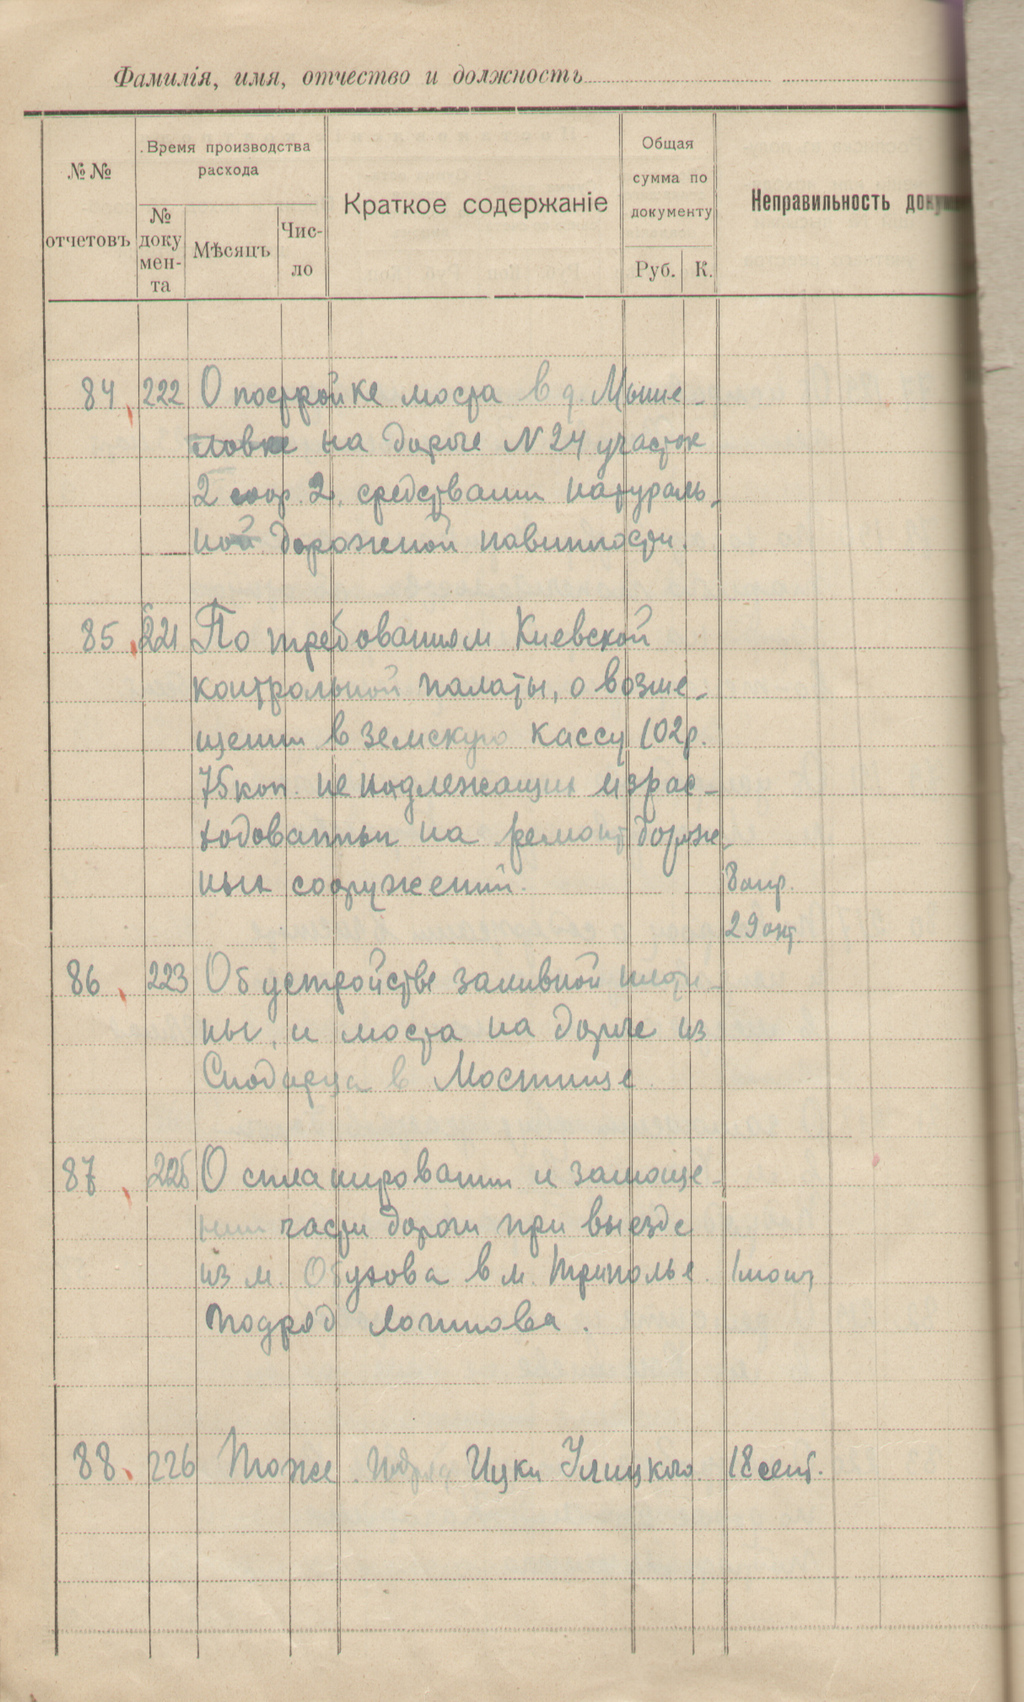 Фамилія, имя, отчество и должность
№№ отчетовъ
Время производства расхода
№ документа
Мѣсяцъ
Число
Краткое содержаніе
Общая сумма по документу
Руб. К.
Неправильность
84 222 О постройке моста в д. Мыше-
ловке на дороге N 24 участок
2 соор. 2. средствами натураль-
ной дорожной повинности.
85 221 По требованиям Киевской
контрольной палаты, о возме-
щении в земскую кассу 102 р.
75 коп. не подлежащих израс-
ходованных на ремонт дорож-
ных сооружений. 8 апр.
29 окт.
86 223 Об устройстве заливной плоти-
ны, и моста на дороге из
в Мостище
87 225 О спланировании и замоще-
нии части дороги при выезде
из м. Обухова в м. Триполье
подряд
88 226 Тоже подряд Ицки Улицкого 18 сент.